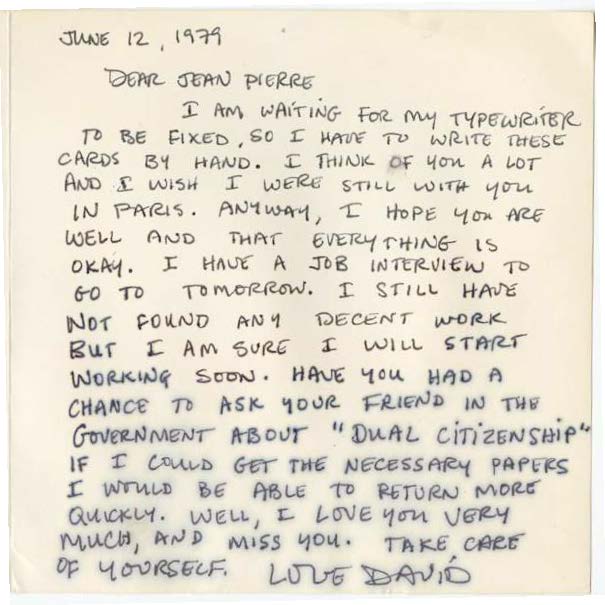 JUNE 12, 1979
DEAR JEAN PIERRE
I AM WAITING FOR MY TYPEWRITER
TO BE FIXED, SO I HAVE TO WRITE THESE
CARDS BY HAND. I THINK OF YOU A LOT
AND I WISH I WERE STILL WITH YOU
IN PARIS. ANYWAY, I HOPE YOU ARE
WELL AND THAT EVERYTHING IS
OKAY. I HAVE A JOB INTERVIEW TO
GO TO TOMORROW. I STILL HAVE
NOT FOUND ANY DECENT WORK
BUT I AM SURE I WILL START
WORKING SOON. HAVE YOU HAD A
CHANCE TO ASK YOUR FRIEND IN THE
GOVERNMENT ABOUT "DUAL CITIZENSHIP"
IF I COULD GET THE NECESSARY PAPERS
I WOULD BE ABLE TO RETURN MORE
QUICKLY. WELL, I LOVE YOU VERY
MUCH, AND MISS YOU. TAKE CARE
OF YOURSELF. LOVE DAVID